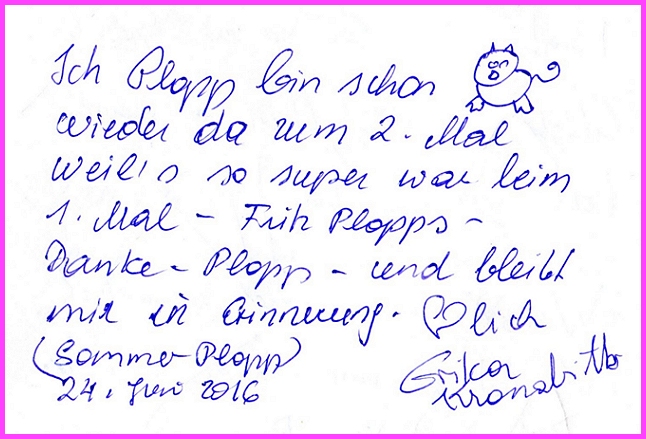 Ich Plopp bin schon
wieder da zum 2. Mal
weil's so super war beim
1. Mal - Fritz Plopps -
Danke - Plopp - und bleibt
mir in Erinnerung. ♡lich
(Sommer-Plopp)
24. Juni 2016
Erika
Kronabitter